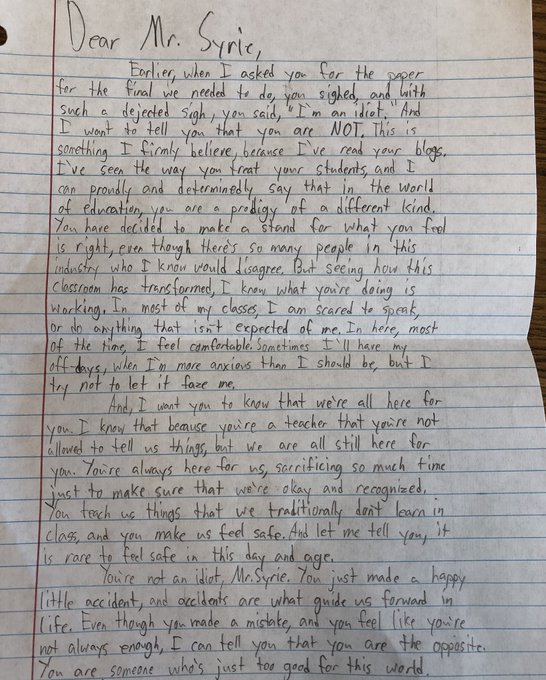 Dear Mr. Syrie,
Earlier, when I asked you for the paper
for the final we needed to do, you sighed, and with
such a dejected sigh, you said, "I'm an idiot." And
I want to tell you that you are NOT. This is
something I firmly believe, because I've read your blogs.
I've seen the way you treat your students, and I
can proudly and determinedly say that in the world
of education, you are a prodigy of a different kind.
You have decided to make a stand for what you feel
is right, even though there's so many people in this
industry who I know would disagree. But seeing how this
classroom has transformed, I know what you're doing is
working. In most of my classes, I am scared to speak,
or do anything that isn't expected of me. In here, most
of the time, I feel comfortable. Sometimes I'll have my
off-days, when I'm more anxious than I should be, but I
try not to let it faze me.
And, I want you to know that we're all here for
you. I know that because you're a teacher that you're not
allowed to tell us things, but we are all still here for
you. You're always here for us, sacrificing so much time
just to make sure that we're okay and recognized.
You teach us things that we traditionally don't learn in
class, and you make us feel safe. And let me tell you, it
is rare to feel safe in this day and age.
You're not an idiot, Mr. Syrie. You just made a happy
little accident, and accidents are what guide us forward in
life. Even though you made a mistake, and you feel like you're
not always enough, I can tell you that you are the opposite.
You are someone who's just too good for this world.